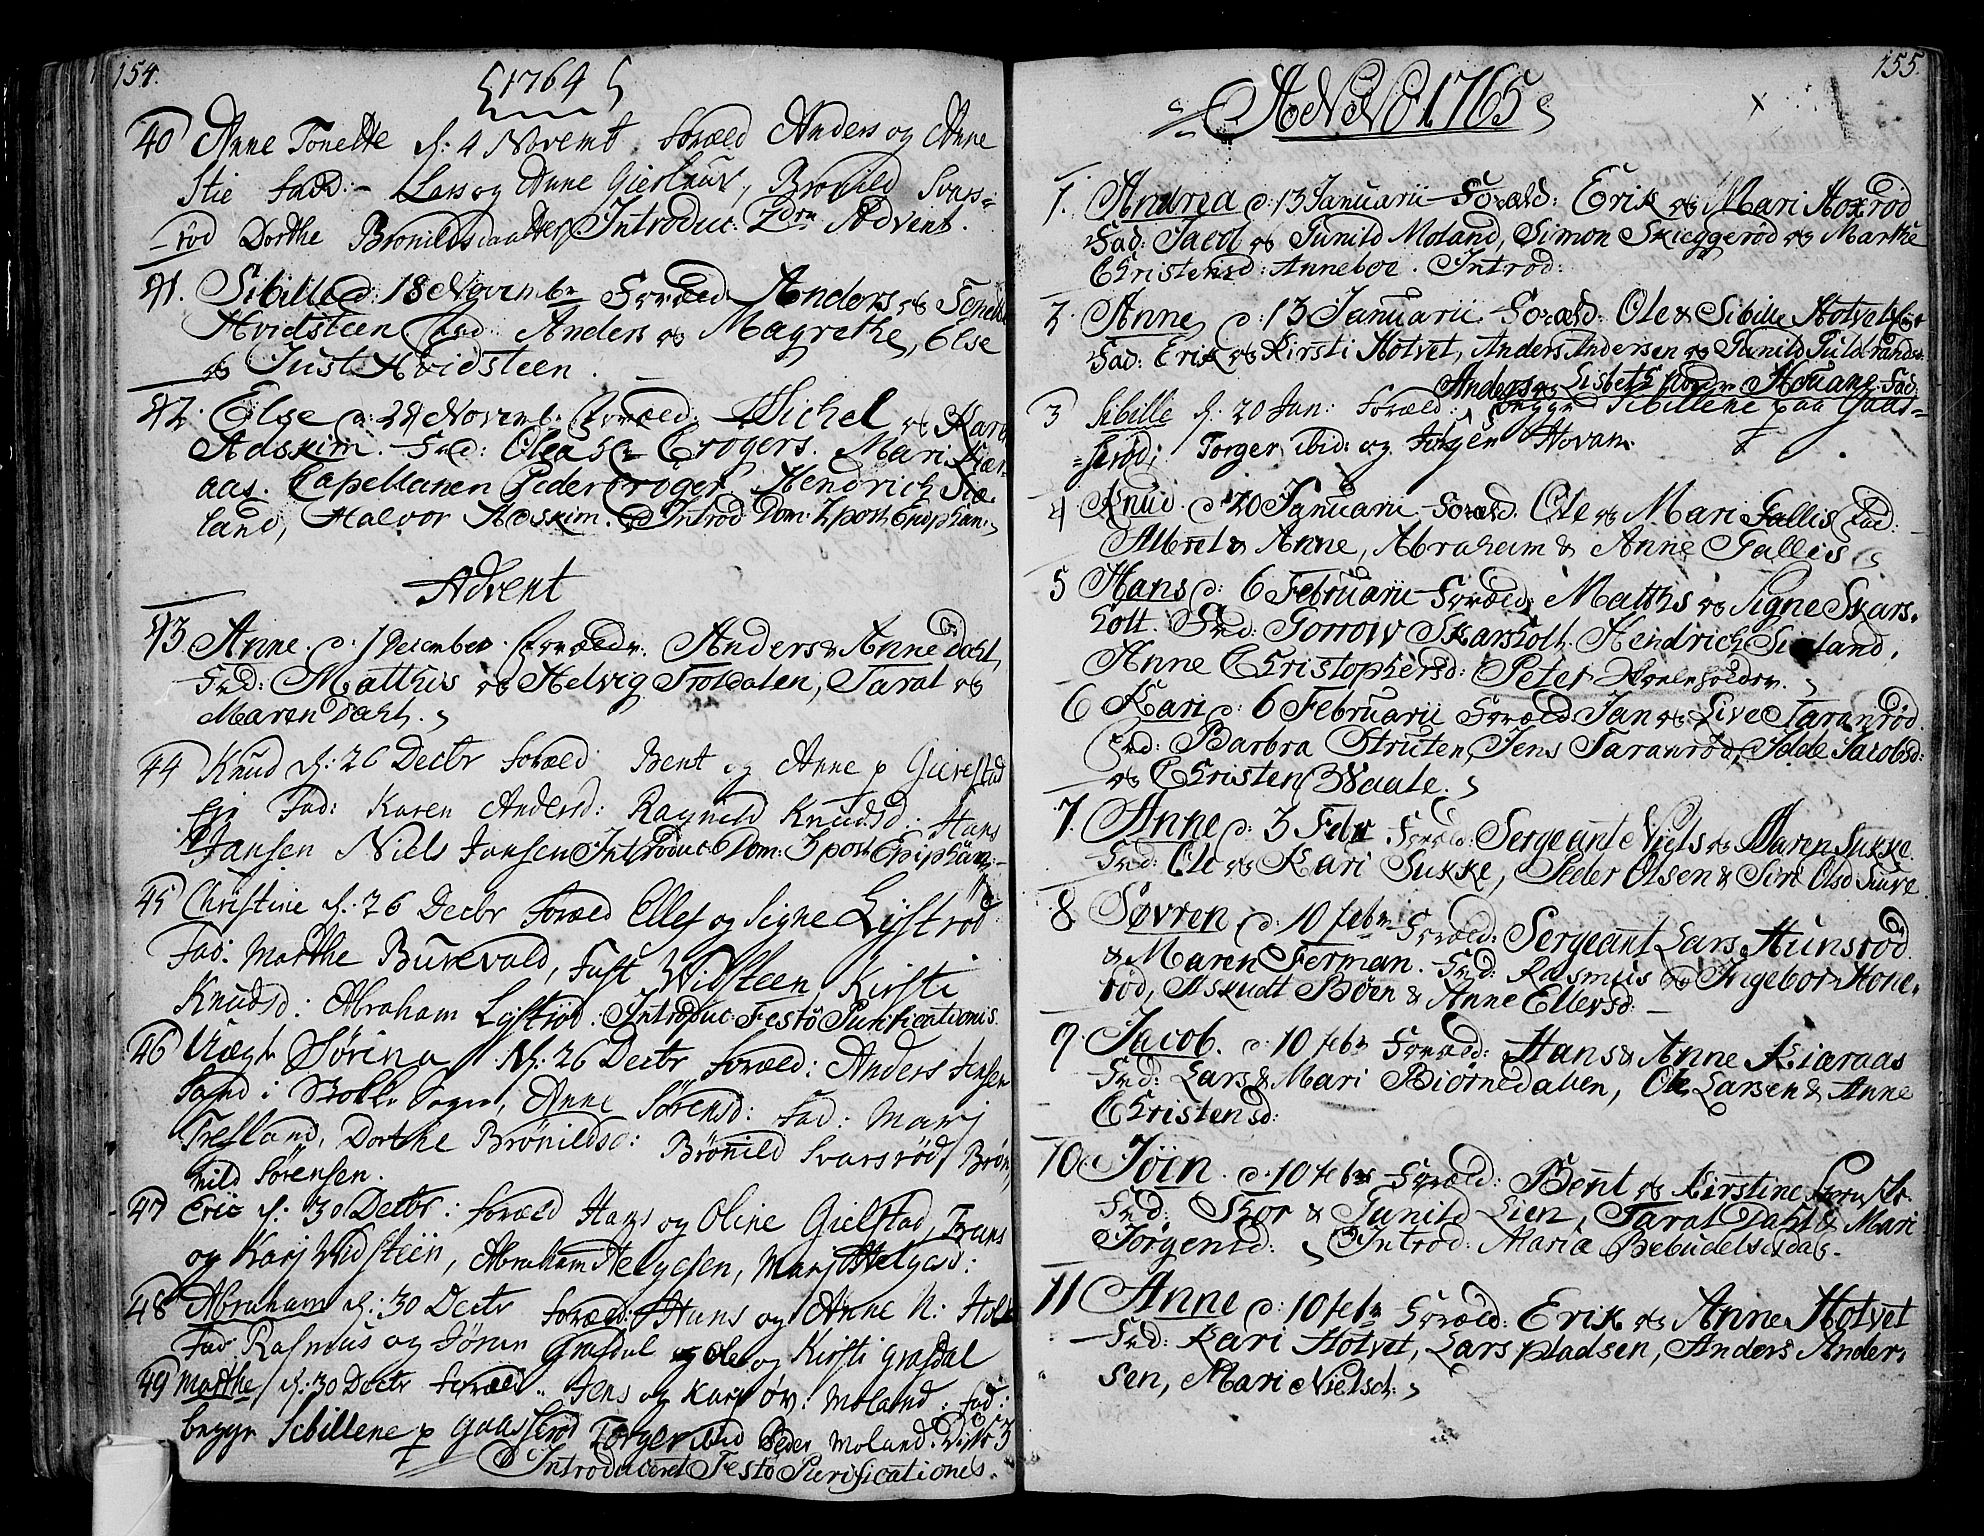 154.
1764
40 Anne Tonette d: 4 Novemb. Foræld Anders og Anne
Stie Fadd: Lars og Anne Gierløuv, Brønild Svars=
rød Dorthe Brønildsdaatter Introduc: 2den Advent.
41. Sibille d: 18 Novembr Foræld Anders og Tonette
Hvidsteen Fad: Anders og Magrethe, Else
og Just Hvidsteen.
42. Else d: 24 Novemb. Foræld: Michel og Karen
Adskim. Fad: Cleasen Crøgers. Mari Kiær
aas. Capellanen Peder Crøger, Hendrich Siø
land, Halvor Adskim. Introd Dom: 2 post Epiphan:
Advent
43 Anne d: 1 December Forældr. Anders & Anne Dahl,
Fad: Matthis og Helvig Troldalen, Taral og
Maren Dahl.
44 Knud d: 26 Decbr Foræld Bent og Anne p Gierstad
Eje Fad: Karen Andersd: Ragnild Knudsd: Hans
Jansen Niels Jansen Introduc: Dom: 3 post Epiphan:
45 Christine d: 26 Decbr Foræld Ellef og Signe Lystrød
Fad: Marthe Burevald, Just Widsteen Kirsti
Knudsd: Abraham Lystrød. Introduc: Festo Purificationis.
46 Uægte Sørina d: 26 Decbr Foræld: Anders Jensen
Sand i Stokke Sogn, Anne Sørensd: Fad: Marj
Trefland, Dorthe Brønildsd: Brønild Svarsrød, Brøn
nild Sørensen.
47 Eric d: 30 Decbr: Foræld Hans og Oline Gielstad, Frans
og Karj Widsteen, Abraham Helgesen, Marj Helgesd:
48 Abraham d: 30 Decbr Foræld: Hans og Anne N: Holt
Fad Rasmus og Jøran Grafdal og Ole og Kirsti Grafdal
49 Marthe d: 30 Decbr Foræld.. Jens og Karj øv: Moland: Fad:
begge Sibillene p Gaasserød Torger ibid Peder Moland.
Introduceret Festo Purificationes.
155.
ANNO 1765
1. Andrea d: 13 Januarii Foræld: Erik og Mari Hoxrød
Fad: Jacob og Gunild Moland, Simon Skieggerød og Marthe
Christensd: Anneboe. Introd:
2 Anne d: 13 Januarii. Foræld: Ole & Sibille Hotvet
Fad: Erik og Kirsti Hotvet, Anders Andersen og Gunild Guldbrandsd:
Anders og Lisbeth Nordr Houane Fad:
3 Sibille d: 20 Jan: Foræld: begge Sibillene paa Gaas=
=serød; Torger ibid: og Jørgen Hovam
4 Knud d: 20 Januarii Foræld. Ole og Mari Gallis Fad:
Albret & Anne, Abraham & Anne Gallis
5 Hans d: 6 Februarii Foræld: Matths og Signe Skars=
holt. Fad: Gorrow Skarsholt. Hendrich Siøland,
Anne Christophersd: Peter
6 Kari d: 6 Februarii Foræld Jan og Live Taranrød.
Fad: Barbra Struten, Jens Taranrød, Jelde Jacobsd:
og Christen Waale.
7. Anne d: 3 Febr Foræld: Sergeant Niels og Maren Sukke.
Fad: Ole og Kari Sukke, Peder Olsen & Siri Olsd
8 Søvren d: 10 febr Foræld: Sergeant Lars Hunsrød
& Maren Ferman. Fad: Rasmus og Ingebor Hone=
rød, Asgudt Bøen & Anne Ellevsd:
9 Jacob. d: 10 febr Foræld: Hans & Anne Kiæraas
Fad: Lars & Mari Biørnedalen, Ole Larsen & Anne
Christensd:
10 Jöen. d: 10 febr Foræld: Bent og Kirstine
Fad: Thor & Gunild Lien, Taral Dahl & Mari
Jørgensd: Introd: Mariæ Bebudelsesdag
11 Anne d: 10 febr Foræld: Erik og Anne Hotvet
Fad: Kari Hotvet, Lars pladsen, Anders Ander
sen, Mari Nielsd: